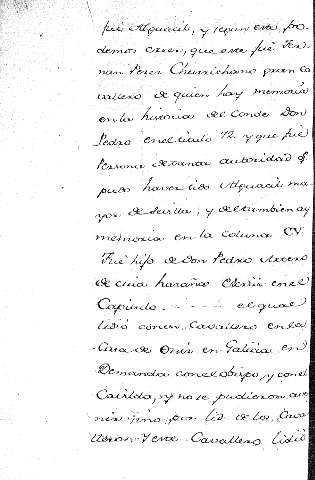 fue Alguacil, y segun esto po-
demos creer, que este fue Fer-
nan Perez Churrichano gran ca
vallero de quien hay memoria
en la historia del Conde Don
Pedro en el titulo 72. y que fue
Persona de tanta autoridad q̃
pudo haver sido Alguacil ma-
yor de Sevilla, y del tambien ay
memoria en la coluna CV
Fue hijo de Don Pedro
de cuia hazaña escrivi en el
Capitulo . - - - - . el qual
lidió con un Cavallero en la
Casa de Orin en Galicia en
Demanda con el obispo, y con el
Cavildo, y no se pudieron ave
nir sino por lid de los Cava
lleros. Y este Cavallero lidió